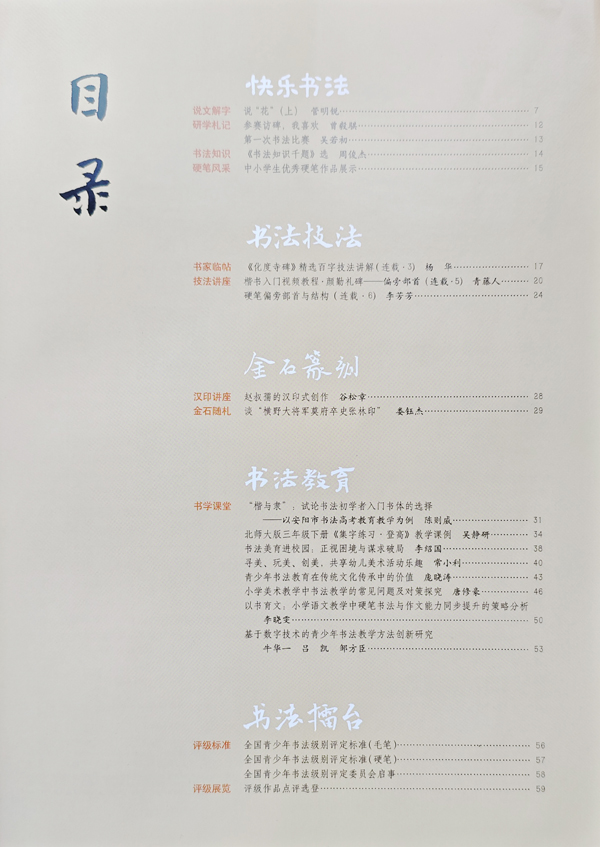 目录
快乐书法
说文解字 说“花”(上) 管明锐 7
研学札记 参赛访碑，我喜欢 曾毅骐 12
第一次书法比赛 吴若初 13
书法知识 《书法知识千题》选 周俊杰 14
硬笔风采 中小学生优秀硬笔作品展示 15
书法技法
书家临帖 《化度寺碑》精选百字技法讲解(连载·3) 杨 华 17
技法讲座 楷书入门视频教程·颜勤礼碑——偏旁部首(连载·5) 青藤人 20
硬笔偏旁部首与结构(连载·6) 李芳芳 24
金石篆刻
汉印讲座 赵叔孺的汉印式创作 谷松章 28
金石随札 谈“横野大将军莫府卒史张林印” 娄钰杰 29
书法教育
书学课堂 “楷与隶”：试论书法初学者入门书体的选择
——以安阳市书法高考教育教学为例 陈则威 31
北师大版三年级下册《集字练习·登高》教学课例 吴静研 34
书法美育进校园：正视困境与谋求破局 李绍国 38
寻美、玩美、创美，共享幼儿美术活动乐趣 常小利 40
青少年书法教育在传统文化传承中的价值 庞晓涛 43
小学美术教学中书法教学的常见问题及对策探究 唐修豪 46
以书育文：小学语文教学中硬笔书法与作文能力同步提升的策略分析
李晓雯 50
基于数字技术的青少年书法教学方法创新研究
牛华一 吕 凯 邹方臣 53
书法擂台
评级标准 全国青少年书法级别评定标准(毛笔) 56
全国青少年书法级别评定标准(硬笔) 57
全国青少年书法级别评定委员会启事 58
评级展览 评级作品点评选登 59